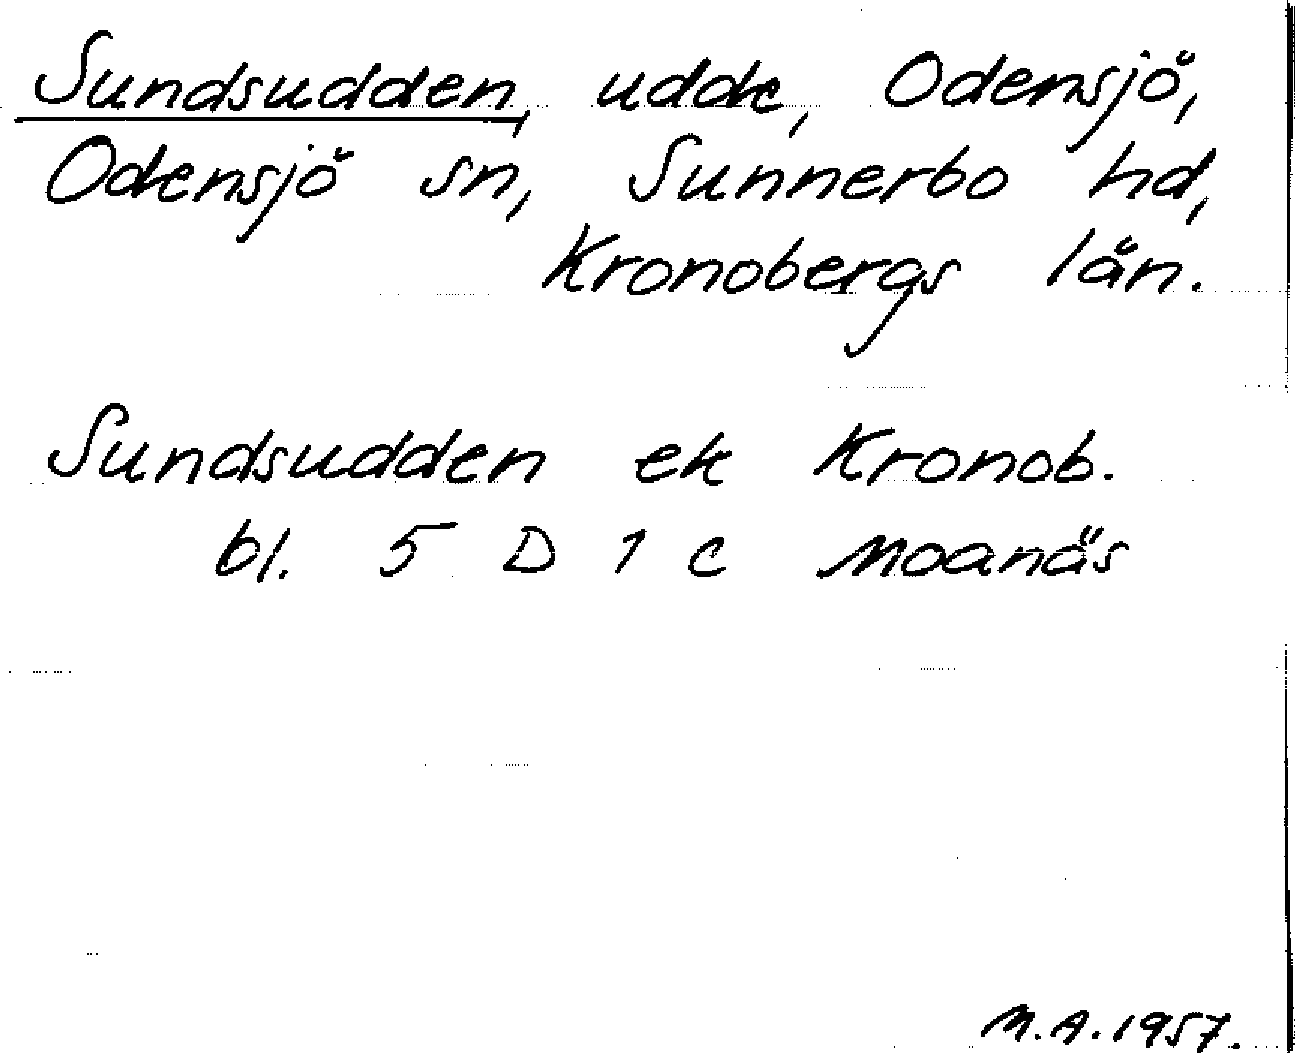 Sundsudden, udde, Odensjö,
Odensjö sn, Sunnerbo hd,
Kronobergs län.
Sundsudden ek Kronob.
bl. 5 D 1 c Moanäs
M.A. 1957.